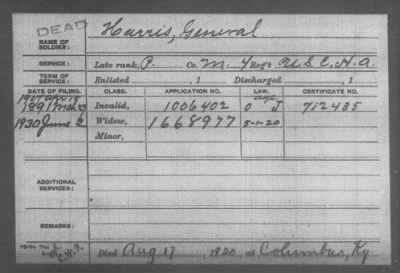 DEAD
NAME OF SOLDIER: Harris, General
SERVICE: Late rank, P. Co. M. 4 Reg't U.S.C.H.A.
TERM OF SERVICE: Enlisted , 1 Discharged , 1
DATE OF FILING. CLASS. APPLICATION NO. LAW. CERTIFICATE NO.
1907 Apr 18 age
1891 Mch 27 Invalid, 1006402 O J 712435
1930 June 2 Widow, 1668977 5-1-20
Minor,
ADDITIONAL SERVICES:
REMARKS:
Died Aug. 17, 1920, at Columbus, Ky